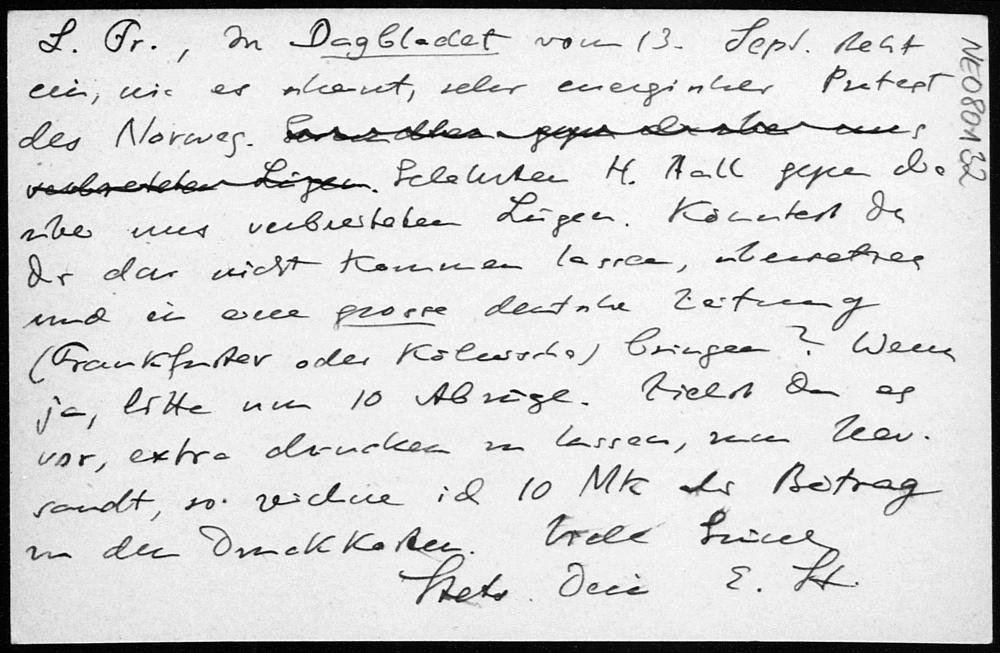 L. Fr., In Dagbladet vom 13. Sept. steht
ein, wie es scheint, sehr energischer Protest
des Norweg. Gesandten gegen die über uns
verbreiteten Lügen. Gelehrten H. Aall gegen die
über uns verbreiteten Lügen. Könntest Du
Dir das nicht kommen lassen, übersetzen
und in eine grosse deutsche Zeitung
(Frankfurter oder Kölnische) bringen? Wenn
ja, bitte um 10 Abzüge. Ziehst Du es
vor, extra drucken zu lassen, zum Ver-
sandt, so zeichne ich 10 Mk als Beitrag
zu den Druckkosten. Viele Grüsse
Stets Dein E. St.
NE080132